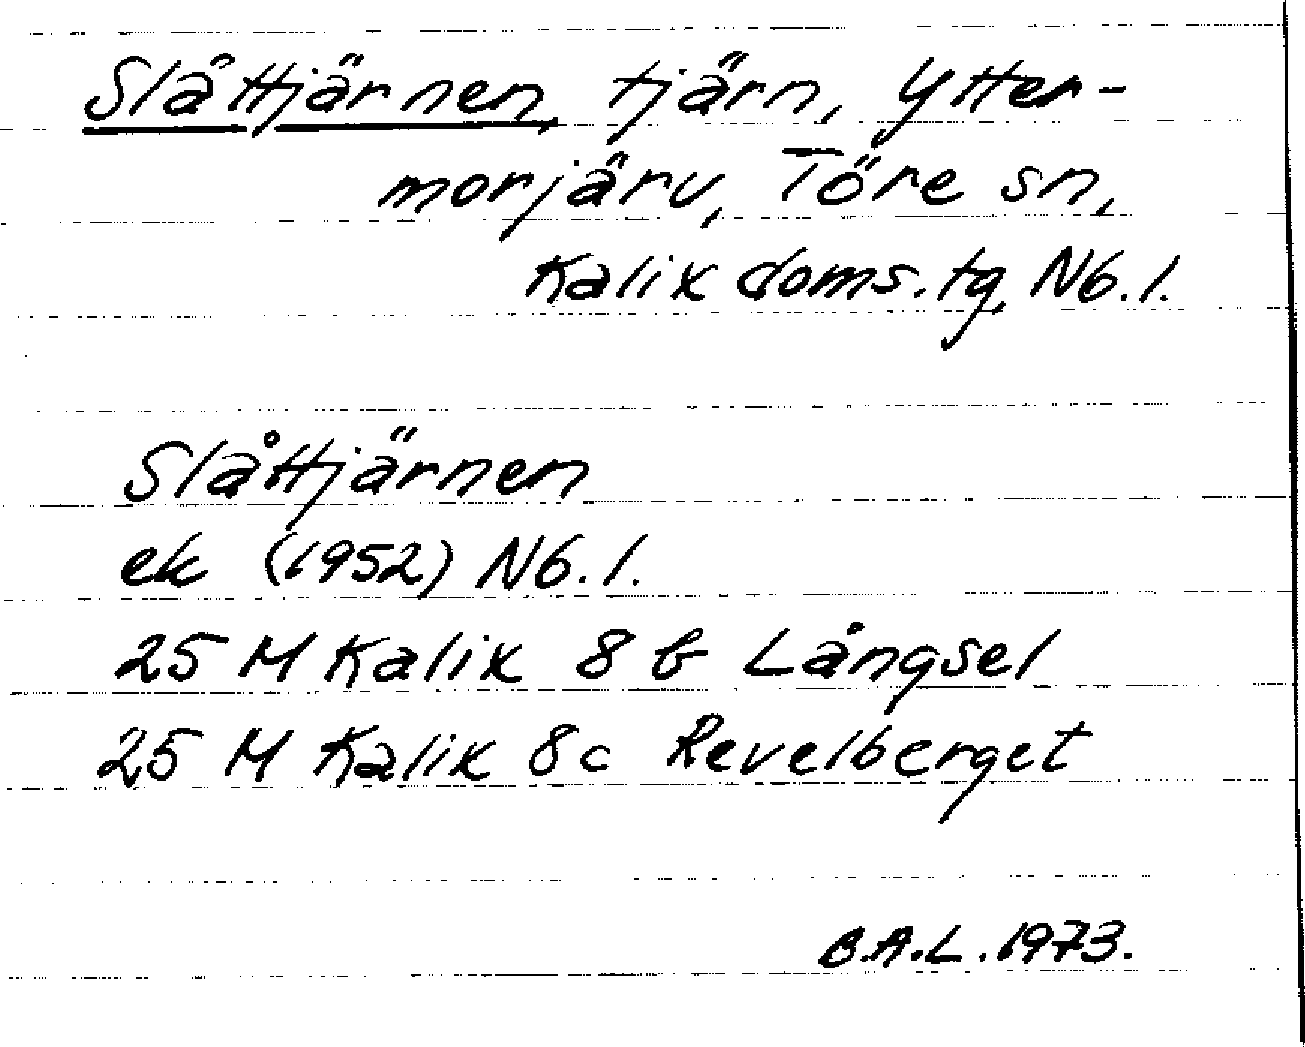 Slåttjärnen, tjärn, Ytter-
morjärv, Töre sn,
Kalix doms. tg, Nb. l.
Slåttjärnen
ek (1952) Nb. l.
25 M Kalix 8 b Långsel
25 M Kalix 8c Revelberget
B.A.L. 1973.